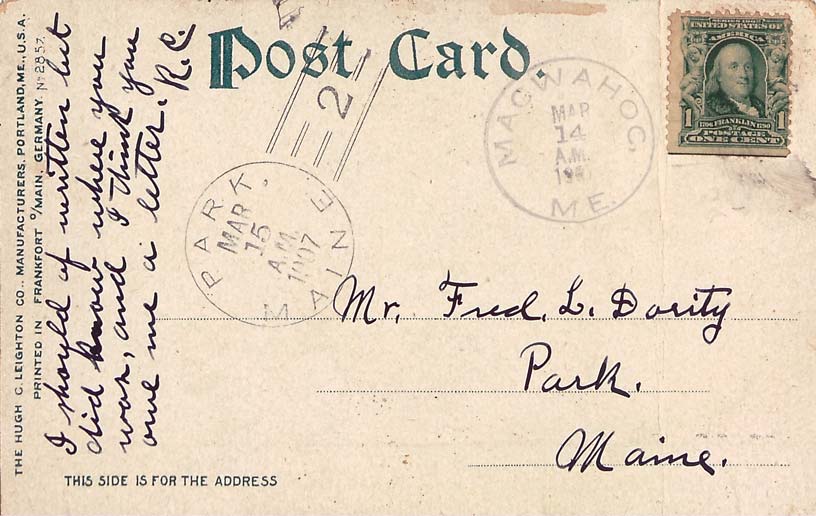 Post Card.
THE HUGH C. LEIGHTON CO., MANUFACTURERS, PORTLAND, ME., U.S.A.
PRINTED IN FRANKFORT O/MAIN, GERMANY. No 2857.
I should of written but
did know where you
was, and I think you
owe me a letter. R.C.
2
PARK, MAINE
MAR
15
A.M.
1907
MACWAHOC, ME.
MAR
14
A.M.
SERIES 1902
UNITED STATES OF
AMERICA
1
1706 FRANKLIN 1790
POSTAGE
ONE CENT
1
Mr. Fred. L. Dority
Park.
Maine.
THIS SIDE IS FOR THE ADDRESS